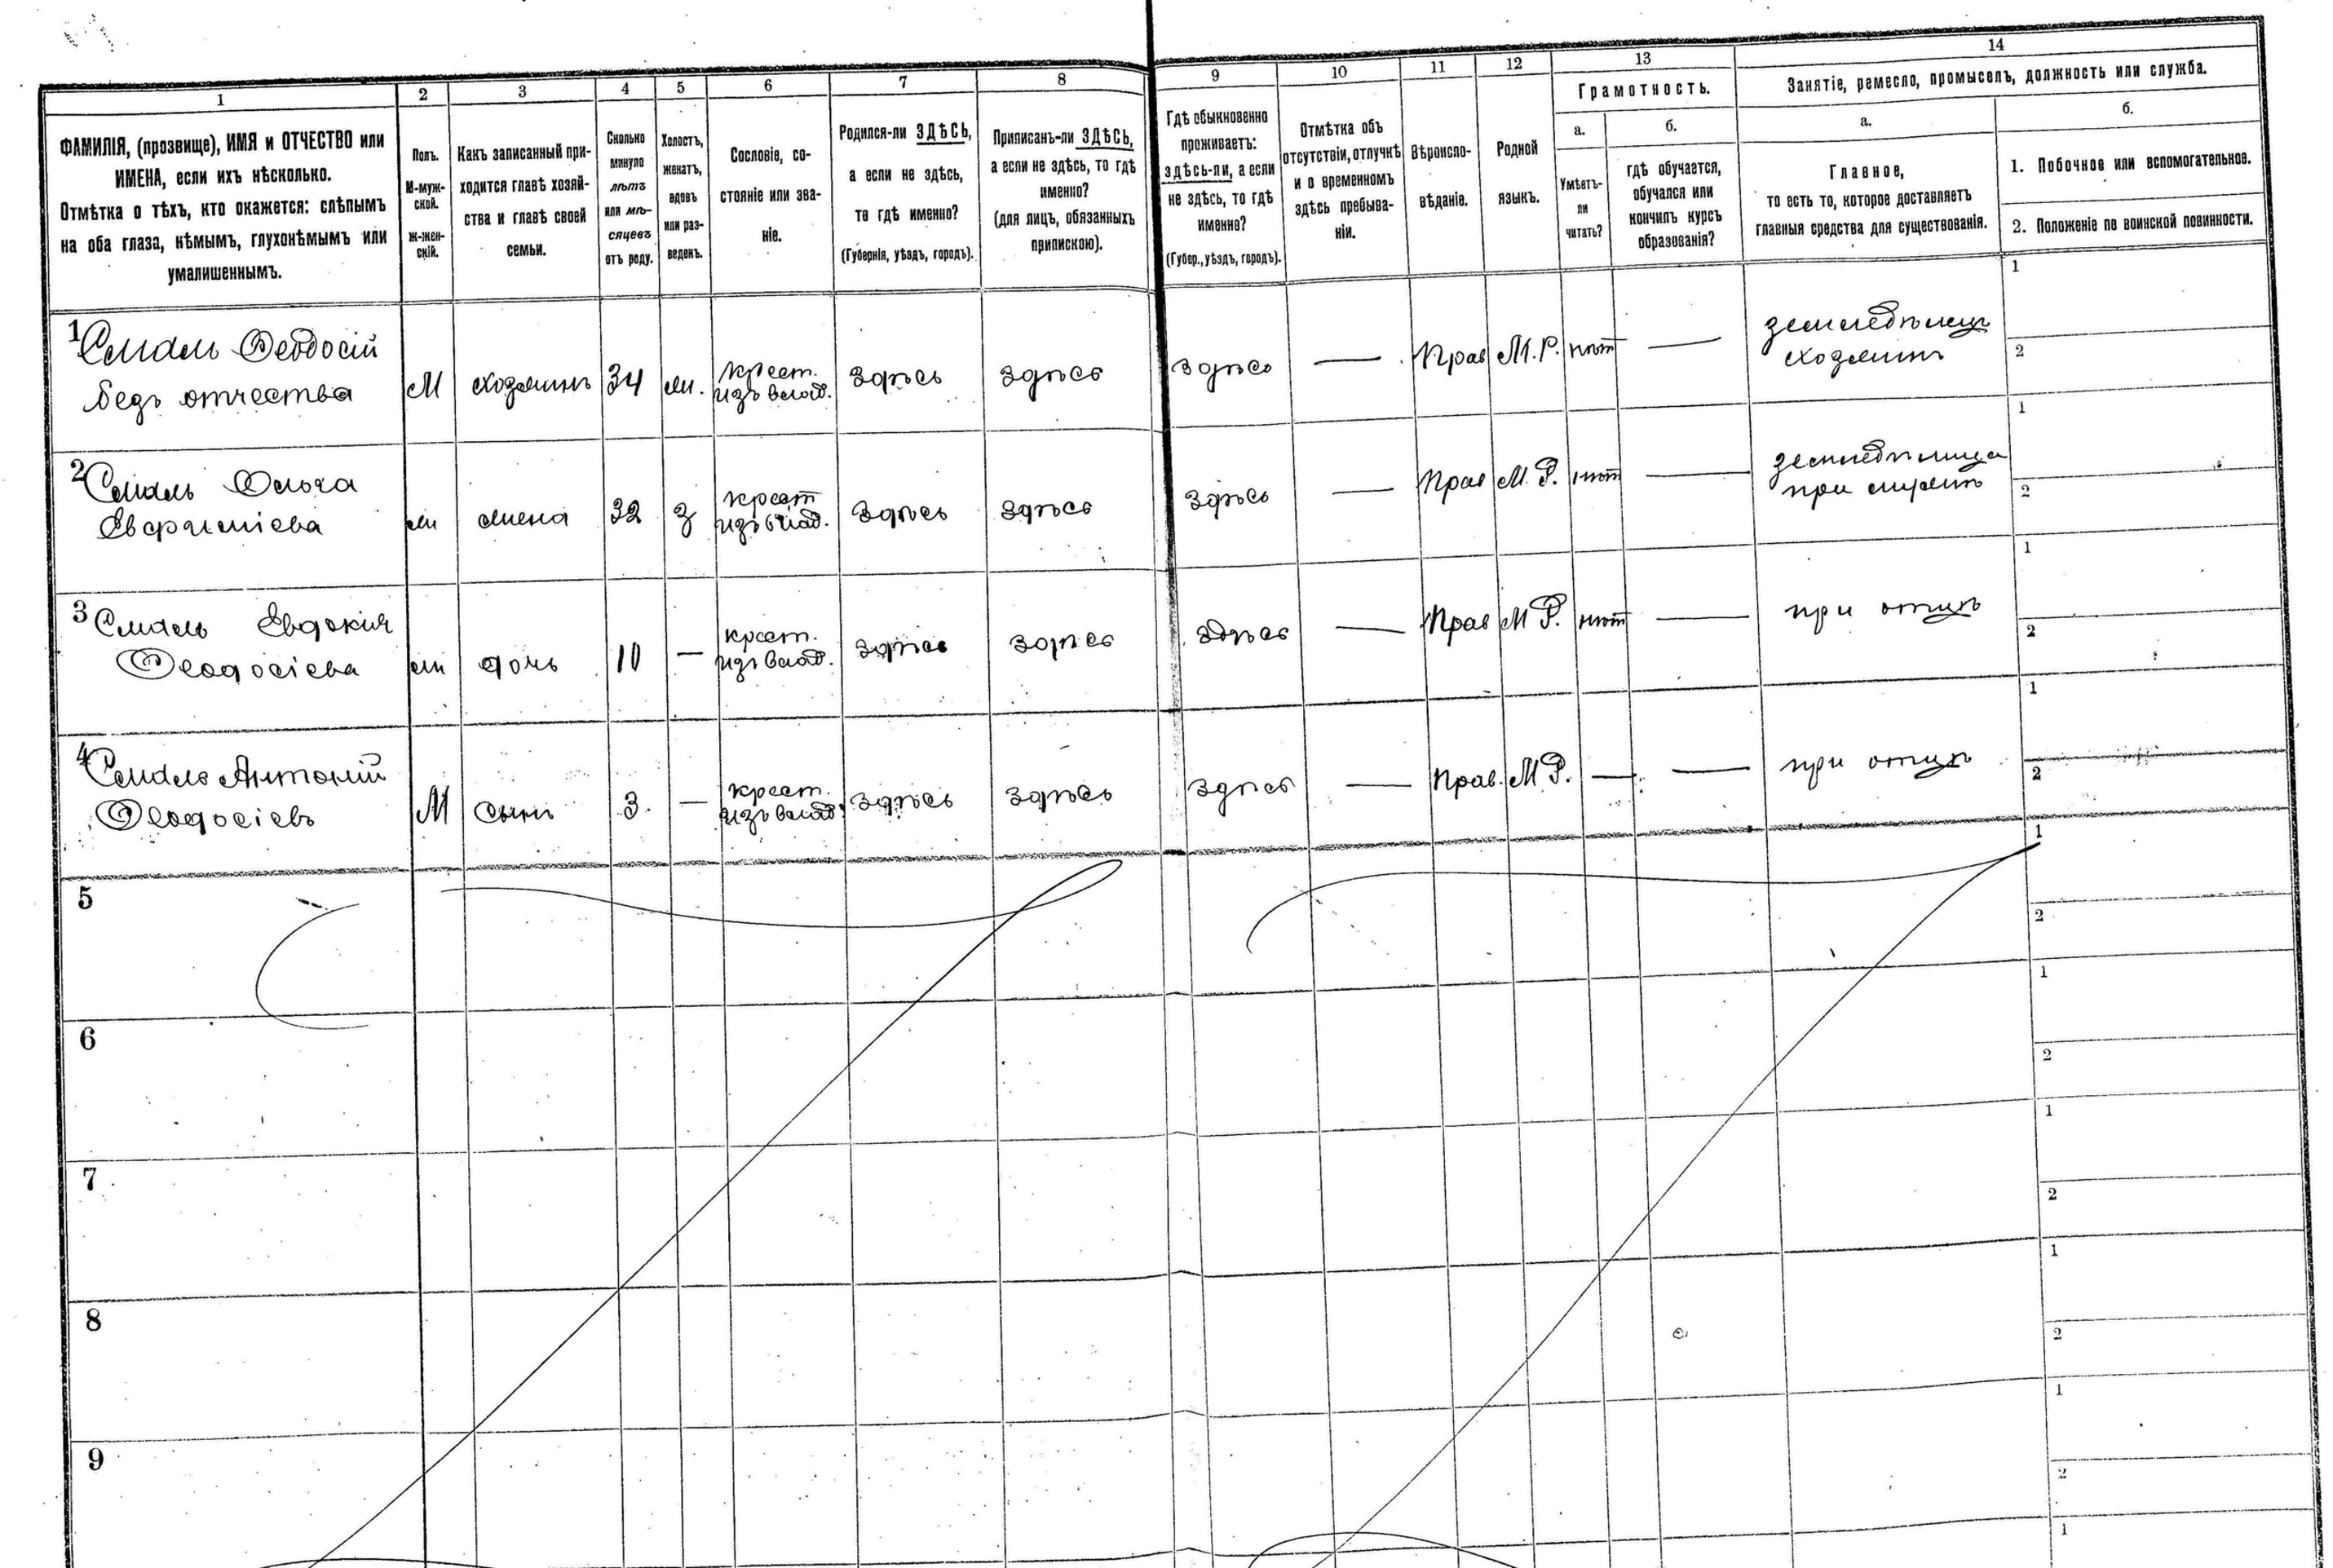 1
2
3
4
5
6
7
8
9
10
11
12
13
14
Грамотность.
Занятіе, ремесло, промыселъ, должность или служба.
ФАМИЛІЯ, (прозвище), ИМЯ и ОТЧЕСТВО или
ИМЕНА, если ихъ нѣсколько.
Отмѣтка о тѣхъ, кто окажется: слѣпымъ
на оба глаза, нѣмымъ, глухонѣмымъ или
умалишеннымъ.
Полъ.
М-муж-
ской.
Ж-жен-
скій.
Какъ записанный при-
ходится главѣ хозяй-
ства и главѣ своей
семьи.
Сколько
минуло
лѣтъ
или мѣ-
сяцевъ
отъ роду.
Холостъ,
женатъ,
вдовъ
или раз-
веденъ.
Сословіе, со-
стояніе или зва-
ніе.
Родился-ли ЗДѢСЬ,
а если не здѣсь,
то гдѣ именно?
(Губернія, уѣздъ, городъ).
Приписанъ-ли ЗДѢСЬ,
а если не здѣсь, то гдѣ
именно?
(для лицъ, обязанныхъ
припискою).
Гдѣ обыкновенно
проживаетъ:
здѣсь-ли, а если
не здѣсь, то гдѣ
именно?
(Губер., уѣздъ, городъ).
Отмѣтка объ
отсутствіи, отлучкѣ
и о временномъ
здѣсь пребыва-
ніи.
Вѣроиспо-
вѣданіе.
Родной
языкъ.
а.
Умѣетъ-
ли
читать?
б.
гдѣ обучается,
обучался или
кончилъ курсъ
образованія?
а.
Главное,
то есть то, которое доставляетъ
главныя средства для существованія.
б.
1. Побочное или вспомогательное.
2. Положеніе по воинской повинности.
1
Феодосій
безъ отчества
М
хозяинъ
34
ж.
крест.
изъ влад.
здѣсь
здѣсь
здѣсь
—
Прав
М.Р.
нѣт
—
земледѣлец
хозяинъ
1
2
2
Ольга
ж
жена
32
з
крест
изъ влад.
здѣсь
здѣсь
здѣсь
—
Прав
М.Р.
нѣт
—
земледѣлица
при мужѣ
1
2
3
Евдокия
Феодосіева
ж
дочь
10
—
крест.
изъ влад.
здѣсь
здѣсь
здѣсь
—
Прав
М Р.
нѣт
—
при отцѣ
1
2
4
Антоній
Феодосіевъ
М
сынъ
3.
—
крест.
изъ влад.
здѣсь
здѣсь
здѣсь
—
Прав.
М Р.
—
—
при отцѣ
1
2
5
1
2
6
1
2
7
1
2
8
1
2
9
1
2
1